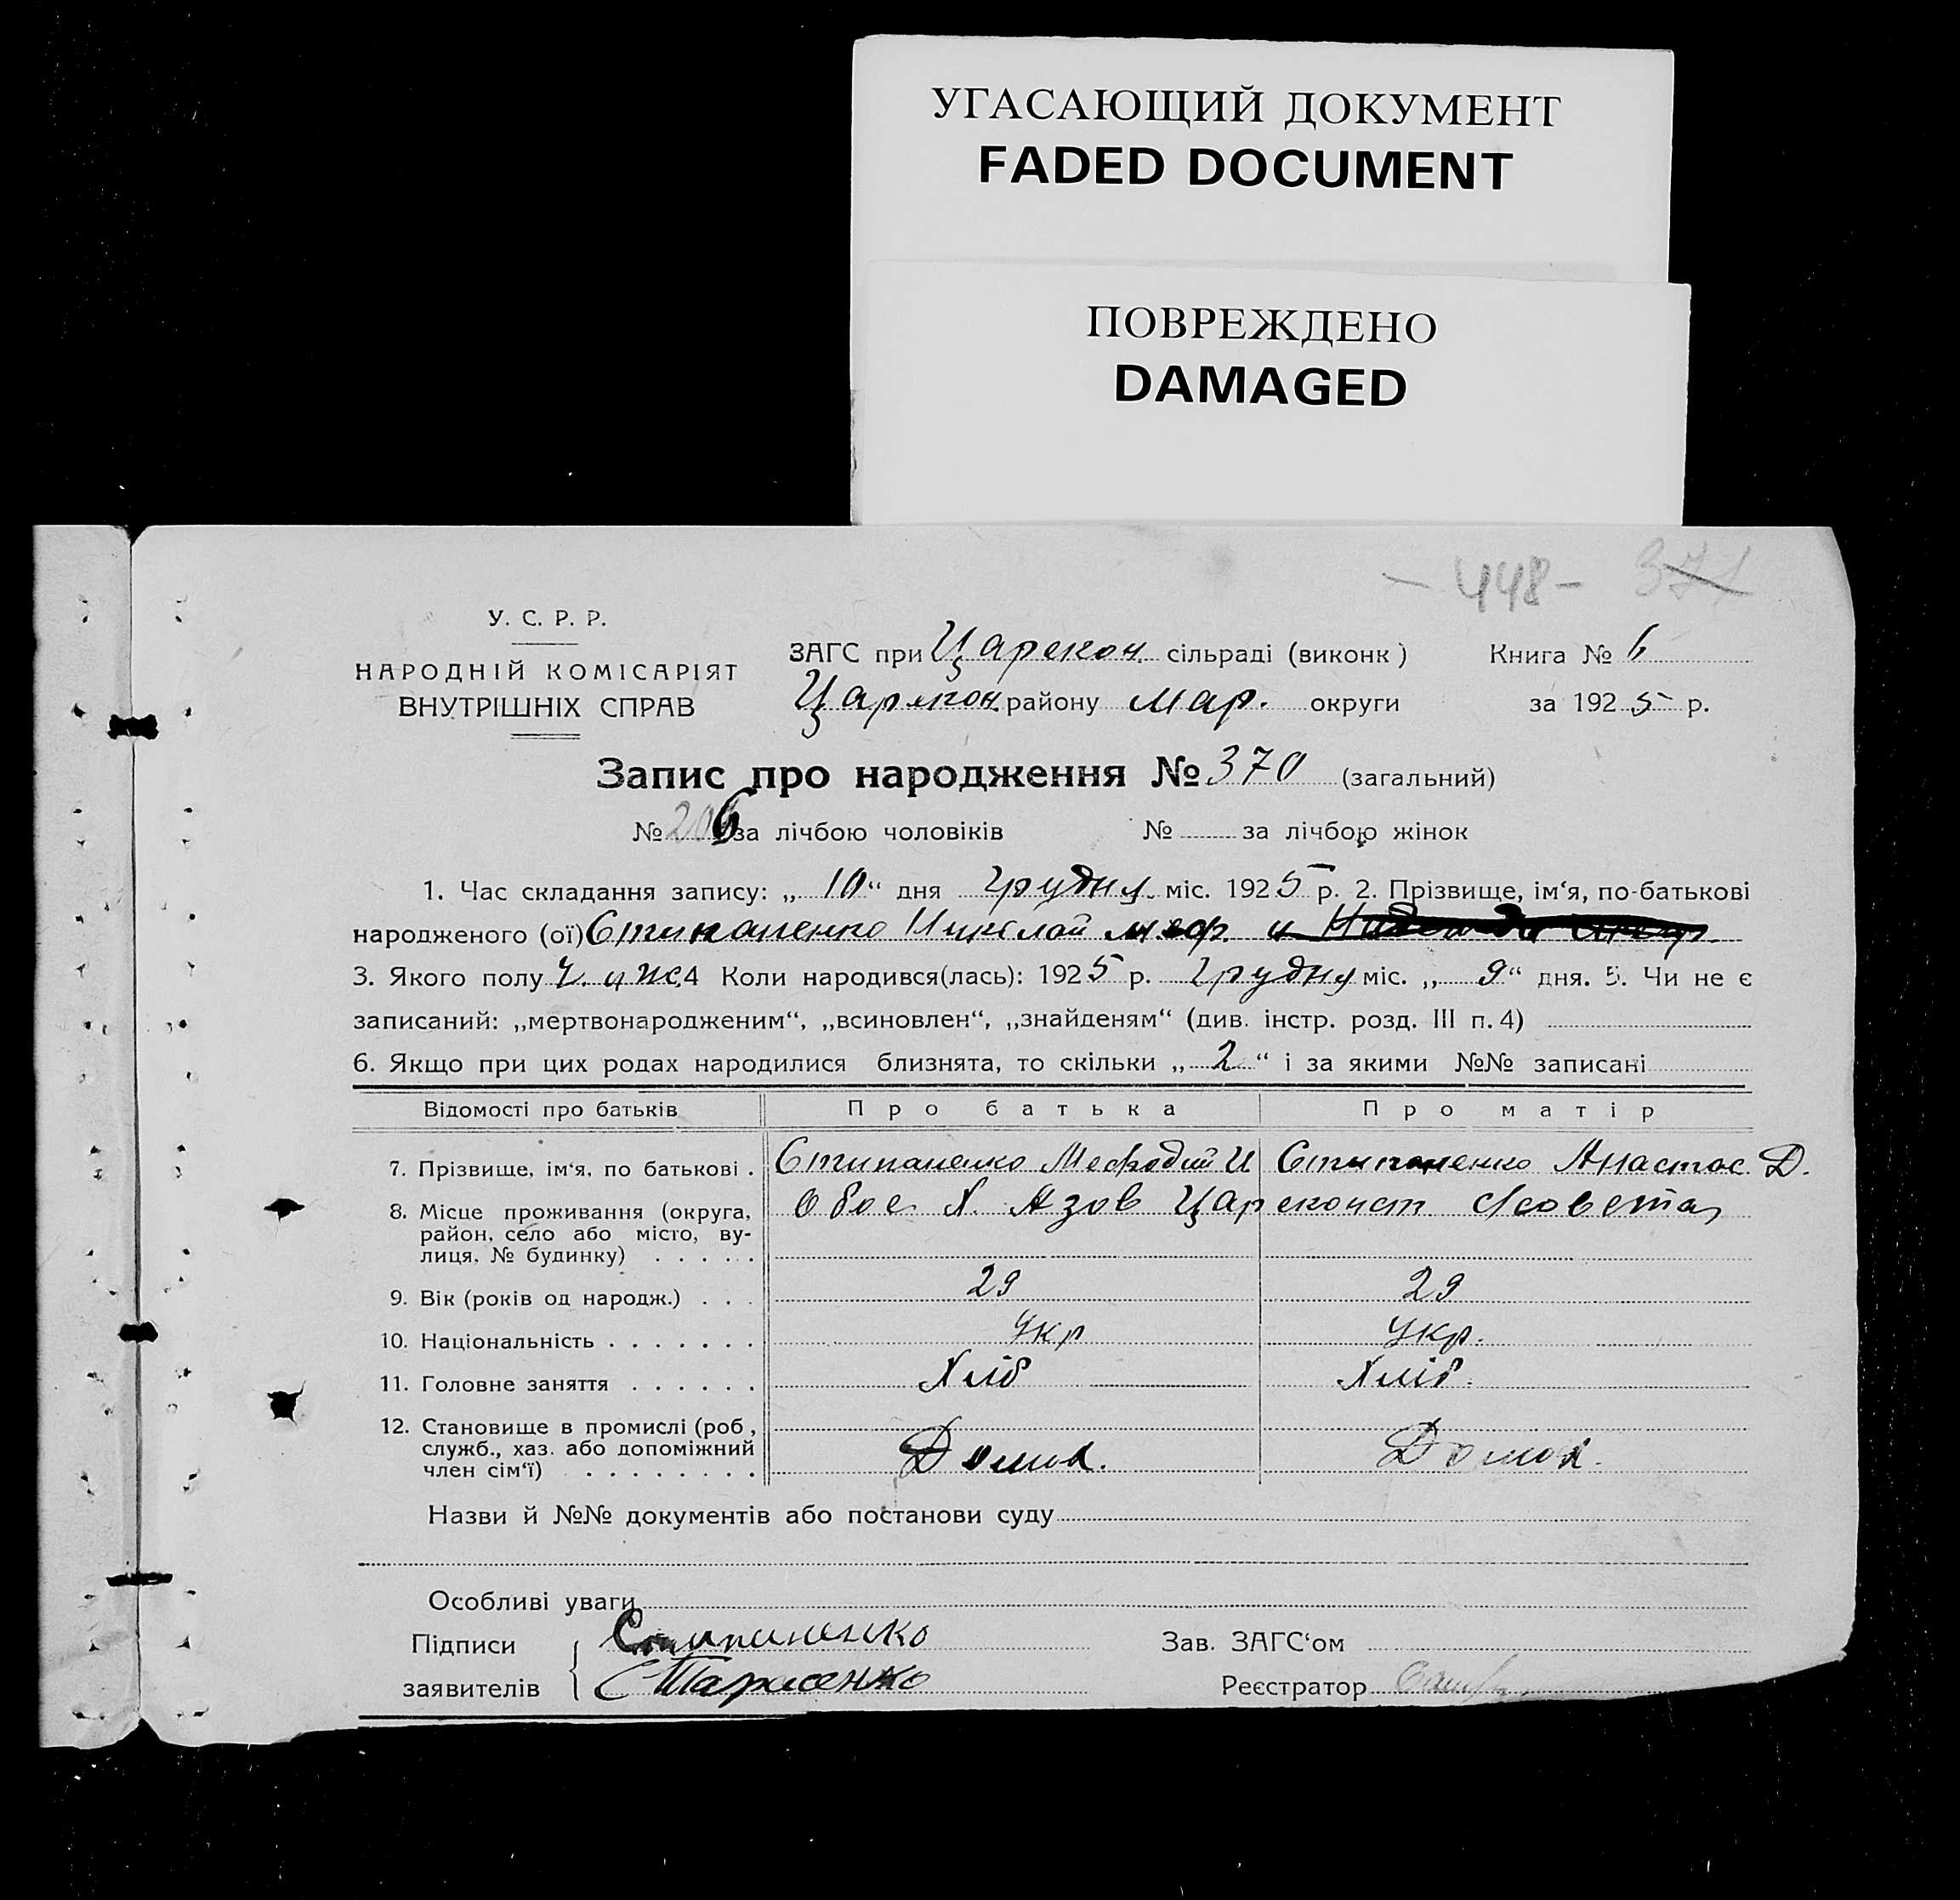 УГАСАЮЩИЙ ДОКУМЕНТ
FADED DOCUMENT
ПОВРЕЖДЕНО
DAMAGED
- 448 - 371
У. С. Р. Р.
НАРОДНІЙ КОМІСАРІЯТ
ВНУТРІШНІХ СПРАВ
ЗАГС при Царекон. сільраді (виконк) Книга № 6
Царекон. району Мар. округи за 1925 р.
Запис про народження № 370 (загальний)
№ 206 за лічбою чоловіків № за лічбою жінок
1. Час складання запису: „ 10 “ дня грудня міс. 1925 р. 2. Прізвище, ім‘я, по-батькові
народженого (ої) Стипаненко Николай Меф. и
3. Якого полу Ч. и ж. 4 Коли народився(лась): 1925 р. грудня міс. „ 9 “ дня. 5. Чи не є
записаний: „мертвонародженим“, „всиновлен“, „знайденям“ (див. інстр. розд. III п. 4)
6. Якщо при цих родах народилися близнята, то скільки „ 2 “ і за якими №№ записані
Відомості про батьків Про батька Про матір
7. Прізвище, ім‘я, по батькові . Стипаненко Мефодий И Стипаненко Анастас. Д.
8. Місце проживання (округа, район, село або місто, вулиця, № будинку) . . . . . Обое Х. Азов Цареконст С/совета
9. Вік (років од народж.) . . . 29 29
10. Національність . . . . . . . Укр Укр.
11. Головне заняття . . . . . . Хліб Хліб.
12. Становище в промислі (роб, служб., хаз. або допоміжний член сім‘ї) . . . . . . . . Домох. Домох.
Назви й №№ документів або постанови суду
Особливі уваги
Підписи Стипаненко Зав. ЗАГС‘ом
заявителів Тарасенко Реєстратор